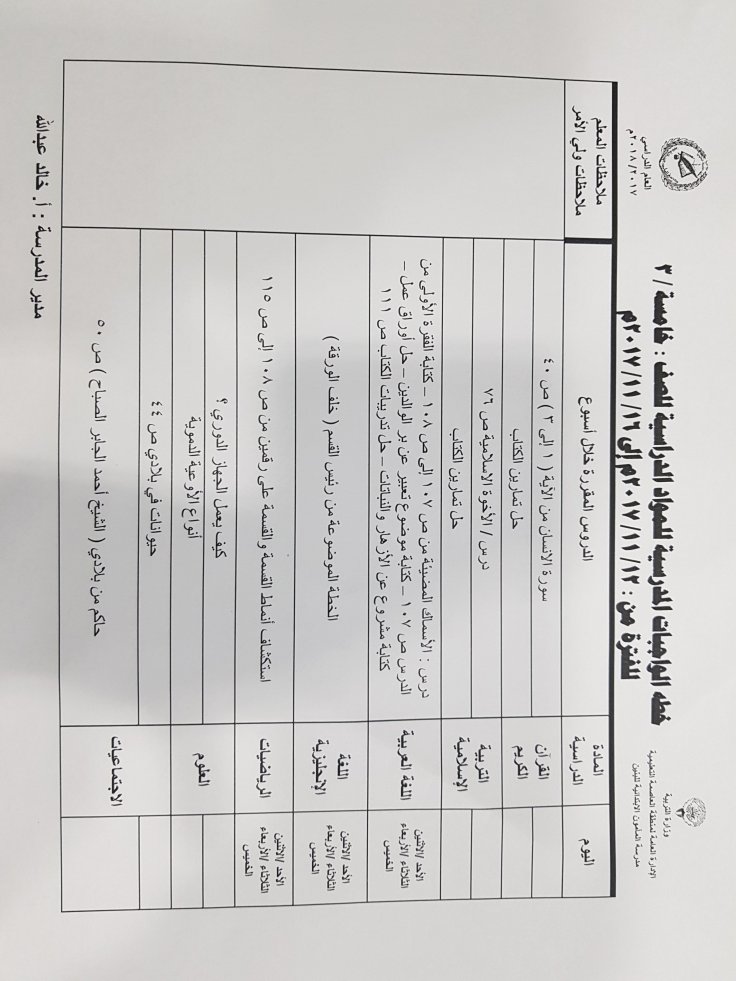 وزارة التربية
الإدارة العامة لمنطقة العاصمة التعليمية
مدرسة المأمون الابتدائية للبنين
العام الدراسي
٢٠١٨/٢٠١٧م
خطه الواجبات المدرسية للمواد الدراسية للصف : خامسة / ٣
للفترة من : ١٢ /١١ /٢٠١٧م إلى ١٦ /١١ /٢٠١٧م
اليوم
المادة الدراسية
الدروس المقررة خلال أسبوع
ملاحظات المعلم
ملاحظات ولي الأمر
القرآن الكريم
سورة الانسان من الآية ( ١ إلى ٣ ) ص ٤٠
حل تمارين الكتاب
التربية الإسلامية
درس / الأخوة الاسلامية ص ٧٦
حل تمارين الكتاب
الأحد /الاثنين
الثلاثاء /الأربعاء
الخميس
اللغة العربية
درس : الأسماك المضيئة من ص ١٠٧ إلى ص ١٠٨ – كتابة الفقرة الأولى من
الدرس ص ١٠٧ – كتابة موضوع تعبير عن بر الوالدين – حل أوراق عمل –
كتابة مشروع عن الأزهار والنباتات – حل تدريبات الكتاب ص ١١١
الأحد /الاثنين
الثلاثاء /الأربعاء
الخميس
اللغة الإنجليزية
الخطة الموضوعة من رئيس القسم ( خلف الورقة )
الأحد /الاثنين
الثلاثاء /الأربعاء
الخميس
الرياضيات
استكشاف أنماط القسمة والقسمة على رقمين من ص ١٠٨ إلى ص ١١٥
العلوم
كيف يعمل الجهاز الدوري ؟
أنواع الأوعية الدموية
الاجتماعيات
حيوانات في بلادي ص ٤٤
حاكم من بلادي ( الشيخ أحمد الجابر الصباح ) ص ٥٠
مدير المدرسة : أ. خالد عبدالله